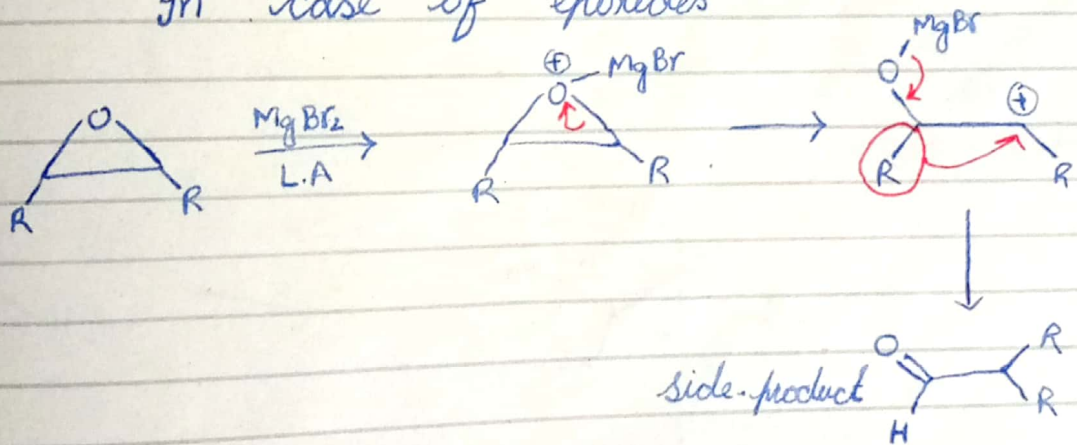 In case of epoxides
O
R
R
MgBr2
L.A
⊕
O
MgBr
R
R
MgBr
O
⊕
R
R
side-product
O
H
R
R